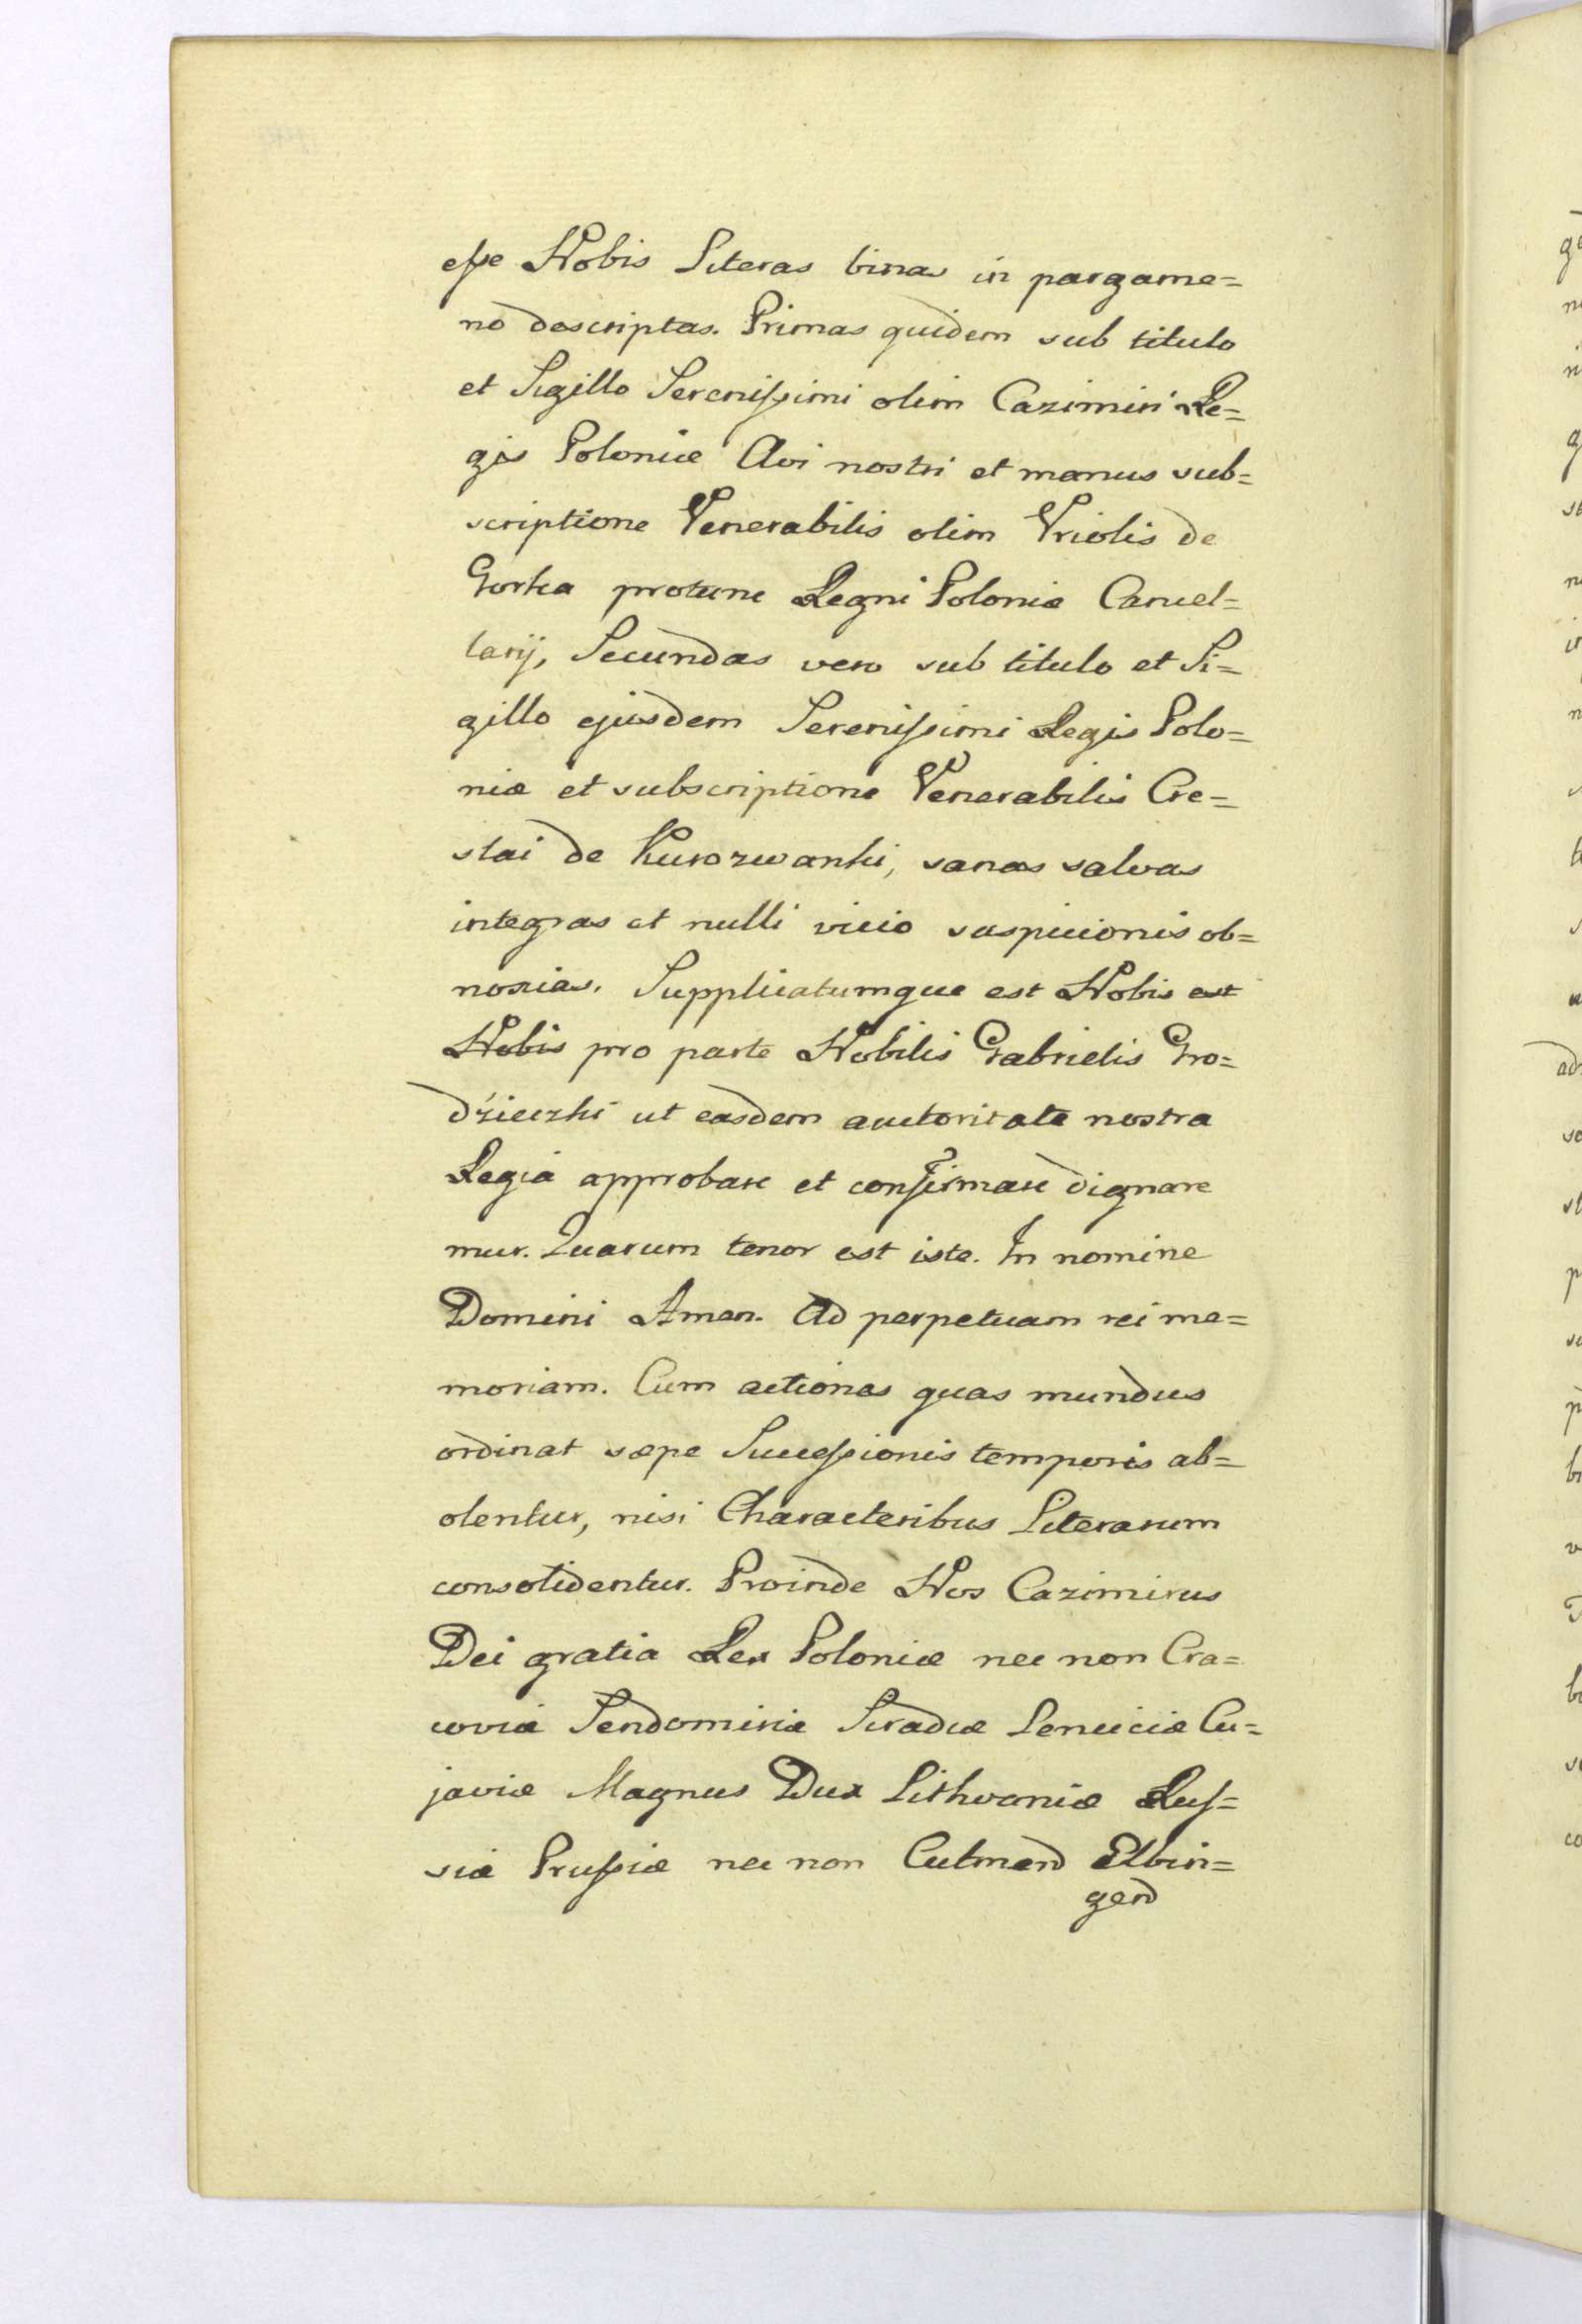 esse Nobis Literas binas in pargame=
no descriptas. Primas quidem sub titulo
et Sigillo Serenissimi olim Cazimiri Re=
gis Poloniæ Avi nostri et manus sub=
scriptione Venerabilis olim Vrielis de
Gorka protunc Regni Poloniæ Cancel=
larij, Secundas vero sub titulo et Si=
gillo ejusdem Serenissimi Regis Polo=
niæ et subscriptione Venerabilis Cre=
slai de Kurozwanki, sanas salvas
integras et nulli vicio suspicionis ob=
noxias. Supplicatumque est Nobis est
Nobis pro parte Nobilis Gabrielis Gro=
dźieczki ut easdem auctoritate nostra
Regia approbare et confirmare dignare
mur. Quarum tenor est iste. In nomine
Domini Amen. Ad perpetuam rei me=
moriam. Cum actiones quas mundus
ordinat sæpe Successionis temporis ab=
olentur, nisi Characteribus Literarum
consolidentur. Proinde Nos Cazimirus
Dei gratia Rex Poloniæ nec non Cra=
coviæ Sendomiriæ Siradiæ Lenciciæ Cu=
javiæ Magnus Dux Lithvaniæ Rus=
siæ Prussiæ nec non Culmend Elbin=
gend